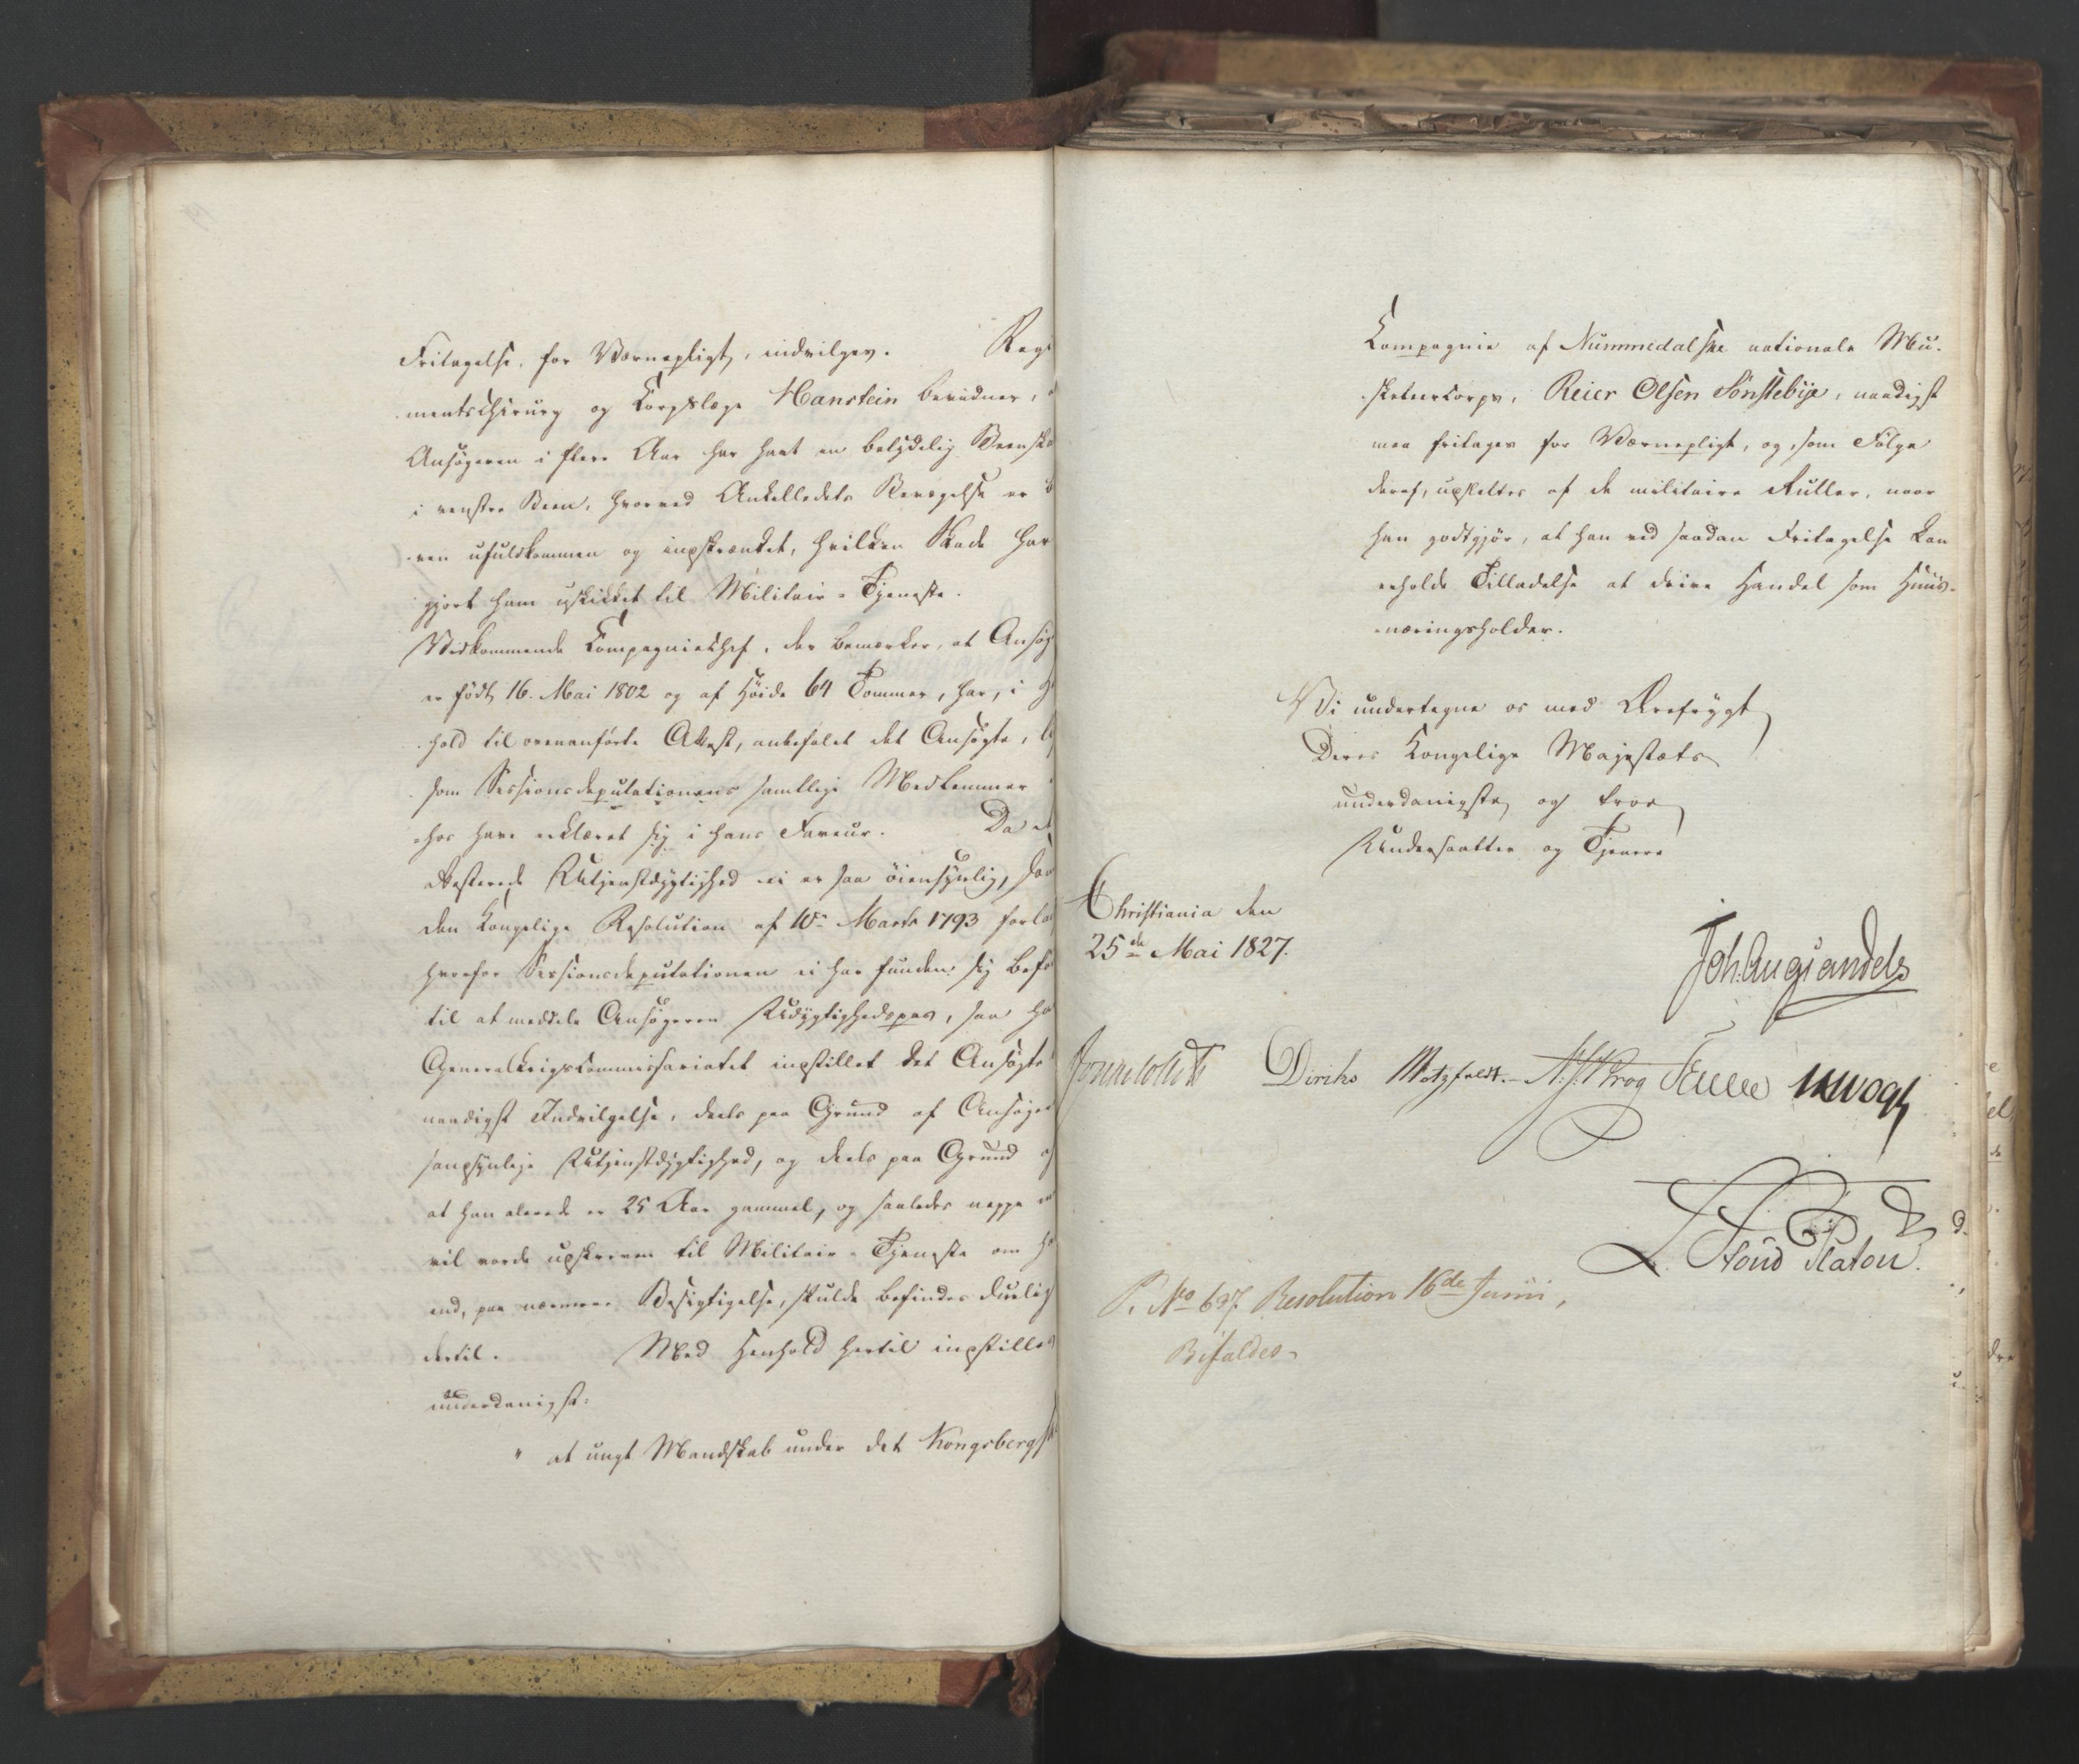 Fritagelse, for Værnepligt, indvilges. Regi
mentschirurg og Corpslæge Hanstein bevidner,
Ansøgeren i flere Aar har havt en betydelig Beenska
i venstre Been, hvorved Ankelledets Bevægelse er
ven ufuldkommen og inpskrænket, hvilken Skade har
gjort ham uskikket til Militair-Tjeneste.
Vedkommende Compagniechef, der bemærker, at Ansøg
er født 16. Mai 1802 og af Høide 64 Tommer, har, i
hold til ovenanførte Attest, anbefalet det Ansøgte,
som Sessionsdeputationens samtlige Medlemmer
hos have erklæret sig i hans Faveur. Da
attesterede Utjenstdygtighed ei er saa øiensynlig, som
den Kongelige Resolution af 10de Marts 1793
hvorfor Sessionsdeputationen ei har funden sig
til at meddele Ansøgeren Udygtighedspas, saa
Generalkrigscommissariatet inpstillet det Ansøgte
naadigst Indvilgelse, deels paa Grund af Ansøger
sanpsynlige Utjenstdygtighed, og deels paa Grund
at han alerede er 25 Aar gammel, og saaledes neppe
vil vorde upskreven til Militair-Tjeneste om
end, paa nærmere Besigtigelse, skulde befindes duelig
dertil. Med Henhold hertil inpstilles
underdanigst:
" at ungt Mandskab under det Kongsbergs
Compagnie af Nummedalske nationale Mu-
sketeercorps, Reier Olsen Sønstebye, naadigst
maa fritages for Værnepligt, og, som Følge
deraf, upslettes af de militaire Ruller, naar
han godtgjør, at han ved saadan Fritagelse kan
erholde Tilladelse at drive Handel som Huus-
næringsholder.
Vi undertegne os med Ærefrygt
Deres Kongelige Majestæts
underdanigste og troe
Undersaatter og Tjenere
Christiania den
25de Mai 1827.
Joh. Aug Sandels
Diriks Motzfeldt. Krog
L. Stoud Platou.
P. No 637. Resolution 16de Junii,
Bifaldes